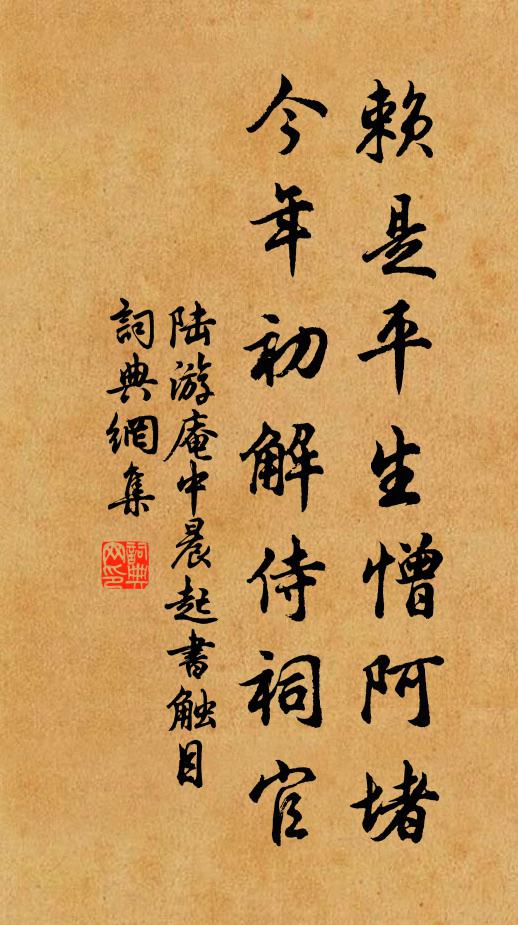 賴是平生憎阿堵
今年初解侍祠官
陸游庵中晨起書触目
詞典網集
詞典網印